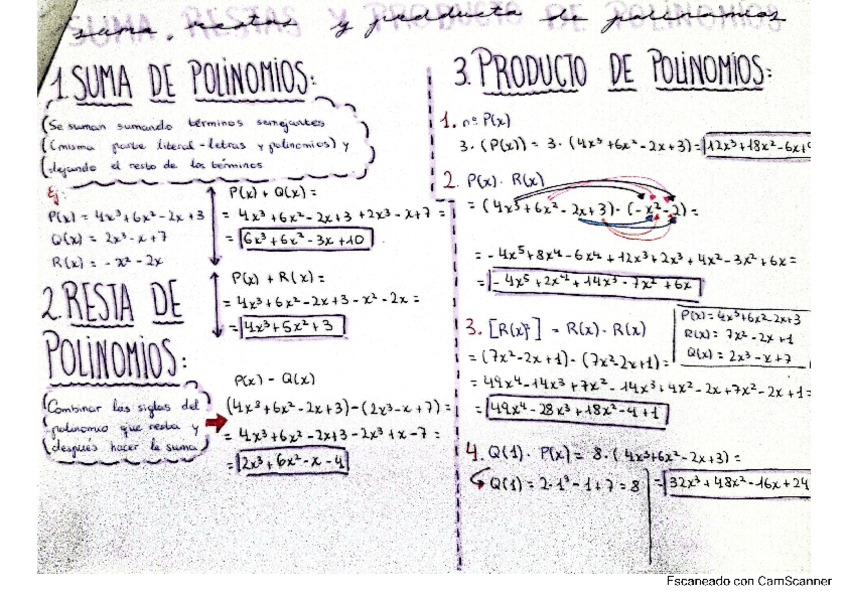 suma, restas y producto de polinomios
1. SUMA DE POLINOMIOS:
(Se suman sumando términos semejantes
(misma parte literal-letras y polinomios) y
dejando el resto de los términos
Ej:
P(x) = 4x³+6x²-2x+3
Q(x) = 2x³-x+7
R(x) = -x²-2x
P(x) + Q(x) =
= 4x³+6x²-2x+3+2x³-x+7 =
= 6x³+6x²-3x+10
P(x) + R(x) =
= 4x³+6x²-2x+3-x²-2x =
= 4x³+5x²+3
2. RESTA DE
POLINOMIOS:
Combinar las siglas del
polinomio que resta y
después hacer la suma
P(x) - Q(x)
(4x³+6x²-2x+3)-(2x³-x+7) =
= 4x³+6x²-2x+3-2x³+x-7 =
= 2x³+6x²-x-4
3. PRODUCTO DE POLINOMIOS:
1. nº P(x)
3·(P(x)) = 3·(4x³+6x²-2x+3) = 12x³+18x²-6x+9
2. P(x)·R(x)
= (4x³+6x²-2x+3)·(-x²-2) =
= -4x⁵+8x⁴-6x⁴+12x³+2x³+4x²-3x²+6x =
= -4x⁵+2x⁴+14x³-7x²+6x
3. [R(x)²] = R(x)·R(x)
P(x)=4x³+6x²-2x+3
R(x)= 7x²-2x+1
Q(x)= 2x³-x+7
= (7x²-2x+1)·(7x²-2x+1) =
= 49x⁴-14x³+7x²-14x³+4x²-2x+7x²-2x+1 =
= 49x⁴-28x³+18x²-4+1
4. Q(1)·P(x) = 8·(4x³+6x²-2x+3) =
Q(1) = 2·1³-1+7 = 8
= 32x³+48x²-16x+24
Escaneado con CamScanner